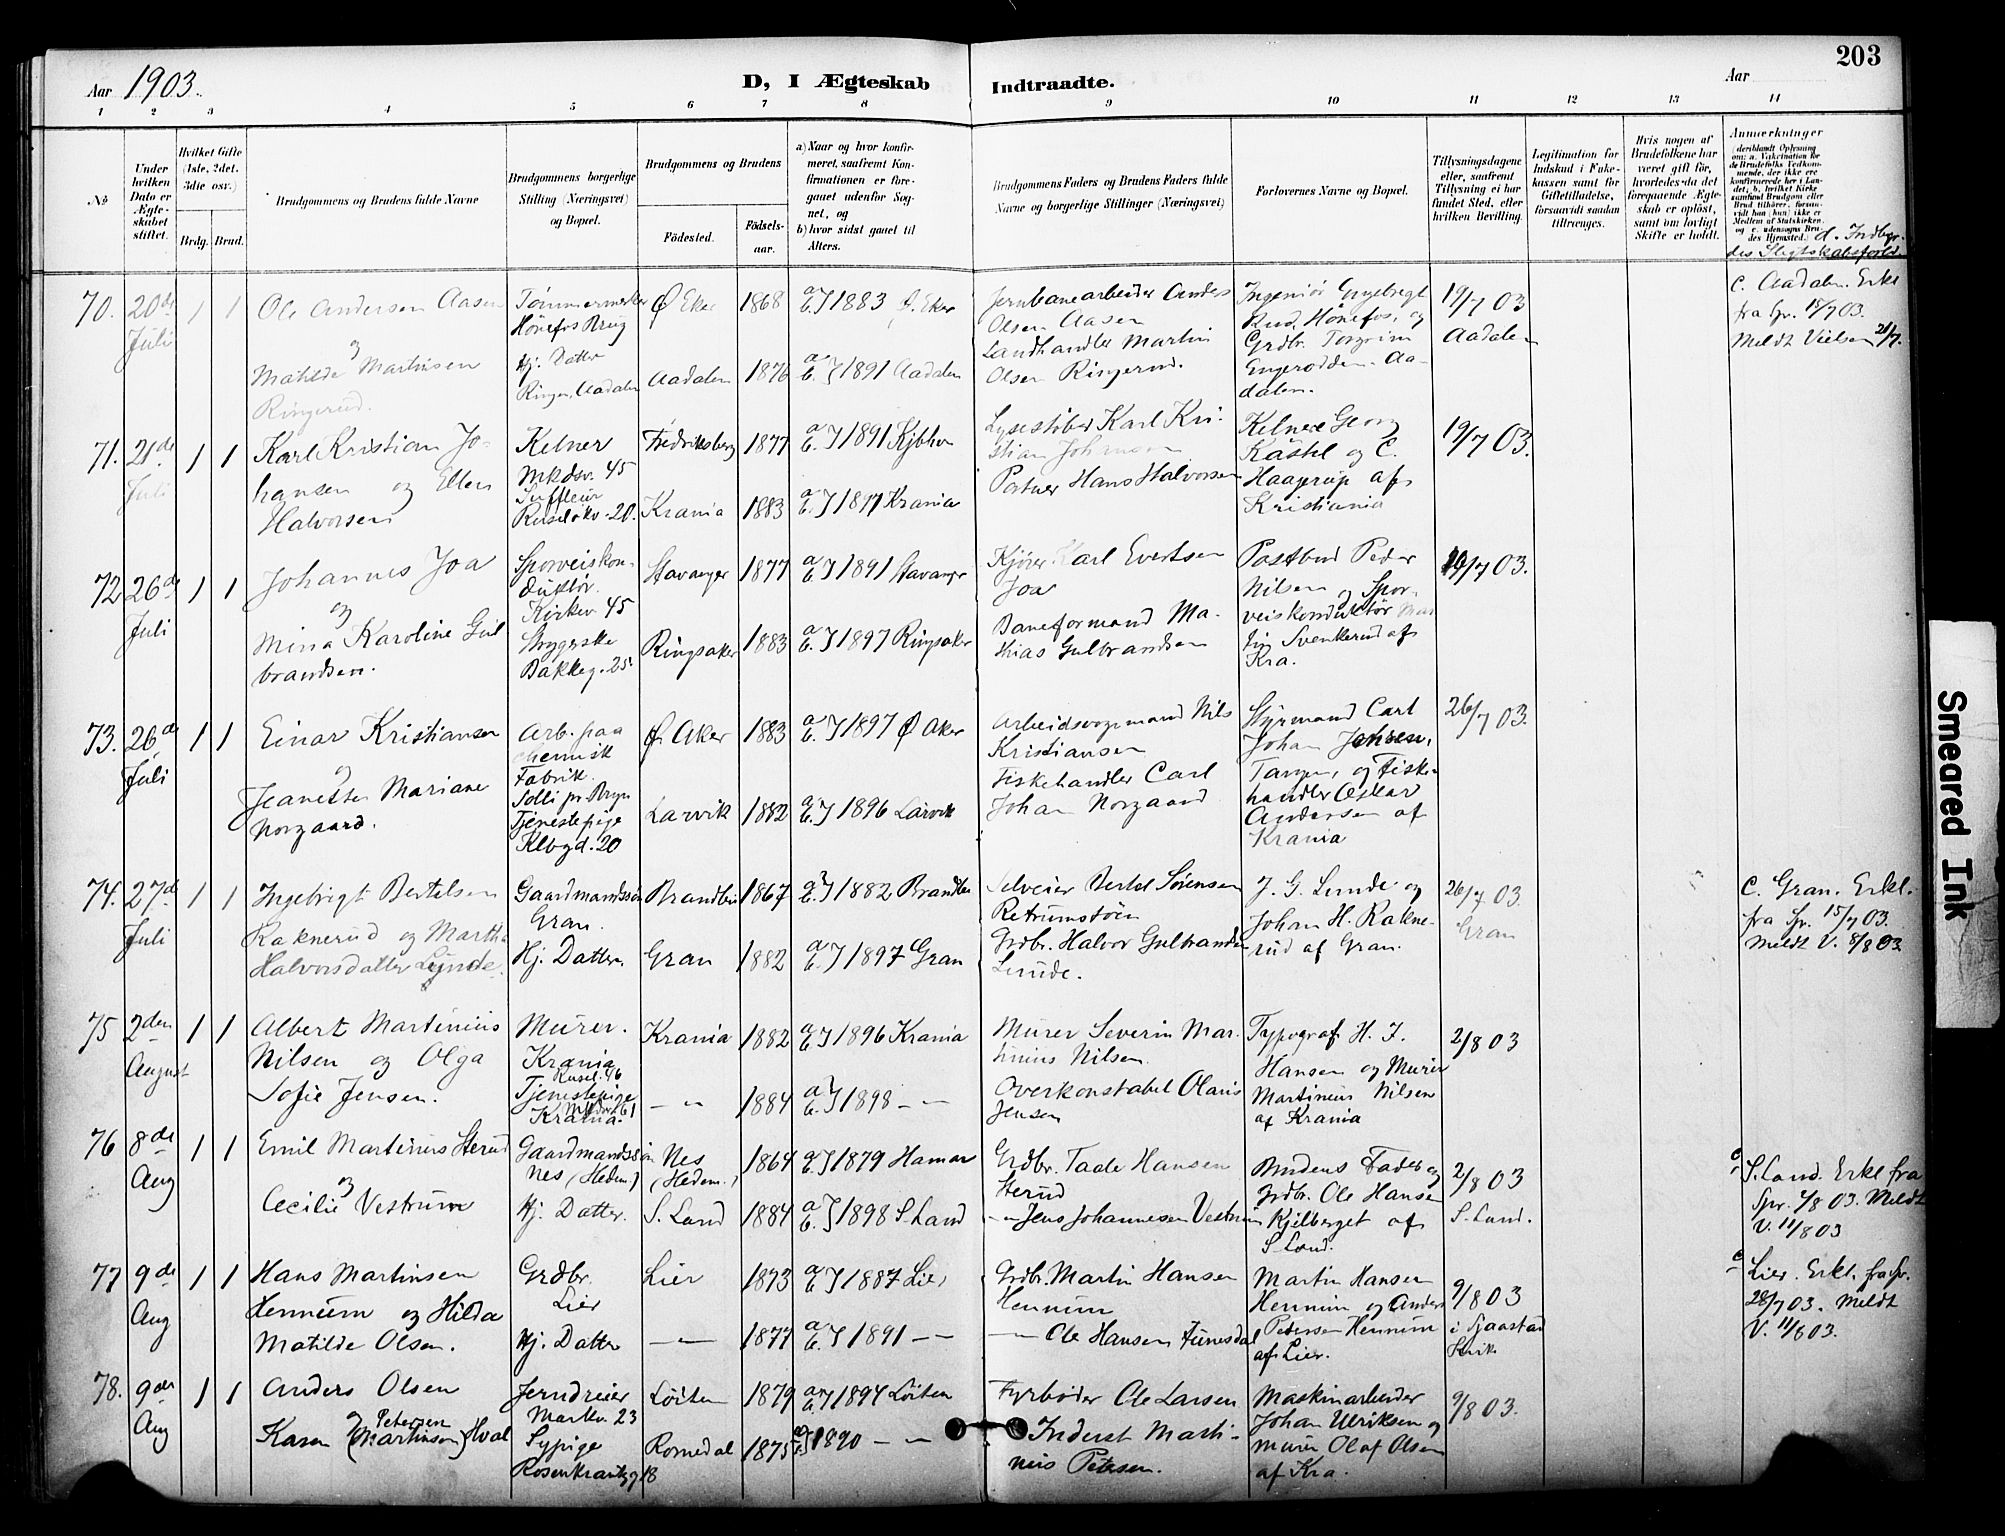 203
Aar 1903.
D, I Ægteskab Indtraadte.
Aar
1 2 3 4 5 6 7 8 9 10 11 12 13 14
№
Under hvilken Dato er Ægteskabet stiftet.
Hvilket Gifte (1ste, 2det, 3die osv.)
Brdg. Brud.
Brudgommens og Brudens fulde Navne
Brudgommens borgerlige Stilling (Næringsvei) og Bopæl.
Brudgommens og Brudens
Fødested. Fødselsaar.
a) Naar og hvor konfirmeret, saafremt Konfirmationen er foregaaet udenfor Sognet, og
b) hvor sidst gaaet til Alters.
Brudgommens Faders og Brudens Faders fulde Navne og borgerlige Stillinger (Næringsvei)
Forlovernes Navne og Bopæl.
Tillysningsdagene eller, saafremt Tillysning ei har fundet Sted, efter hvilken Bevilling.
Legitimation for Indskud i Enkekassen samt for Giftetilladelse, forsaavidt saadan tiltrænges.
Hvis nogen af Brudefolkene har været gift før, hvorledes da det foregaaende Ægteskab er opløst, samt om lovligt Skifte er holdt.
Anmærkninger (deriblandt Oplysning om: a. Vakcination for de Brudefolks Vedkommende, der ikke ere konfirmerede her i Landet, b. hvilket Kirkesamfund Brudgom eller Brud tilhører, forsaavidt han (hun) ikke er Medlem af Statskirken, og c. udensogns Brudes Hjemsted.) d. Indbyrdes Slegtskabsforh.
70. 20de Juli 1 1
Ole Andersen Aasen
og
Mathilde Martinsen
Ringerud.
Tømmermerker
Hønefos Brug
Hj. Datter
Ringer, Aadalen
Ø Eker 1868 1883 Ø. Eker
Aadalen 1876 1891 Aadalen
Jernbanearbeider Anders
Olsen Aasen
Landhandler Martin
Olsen Ringerud.
Ingeniør Engebregt
Rud, Hønefos, og
Grdbr. Torgrim
Engerodden. Aadalen.
19/7 03
Aadalen
c. Aadalen. Erkl
fra Spr. 15/7 03.
Meldt Vielsen 21/7.
71. 21de Juli 1 1
Karl Kristian Johansen og Ellen
Halvorsen
Kelner
Mkdsv. 45
Sufflør
Ruseløkv. 20.
Fredriksberg 1877 1891 Kjbhvn
Krania 1883 1897 Krania
Lysestøber Karl Kristian Johansen
Portner Hans Halvorsen
Kelnere Georg
Kästel og C.
Haagerup af
Kristiania
19/7 03.
72 26de Juli 1 1
Johannes Joa
og
Mina Karoline Gulbrandsen.
Sporveiskonduktør.
Kirkev. 45
Strygerske
Bakkeg. 25.
Stavanger 1877 1891 Stavanger
Ringsaker 1883 1897 Ringsaker
Kjører Karl Evertsen
Joa
Baneformand Mathias Gulbrandsen
Postbud Peder
Nilsen og Sporveiskonduktør
Svenkerud af
Kra.
19/7 03.
73. 26de Juli 1 1
Einar Kristiansen
og
Jeanette Mariane
Norgaard.
Arb. paa
chemisk
Fabrik.
Solli pr Bryn
Tjenestepige
Klbgd. 20
Ø. Aker 1883 1897 Ø Aker
Larvik 1882 1896 Larvik
Arbeidsvogmand Nils
Kristiansen
Fiskehandler Carl
Johan Norgaard
Styrmand Carl
Johan Jensen,
Tangen, og Fiskehandler Oskar
Andersen af
Krania
26/7 03.
74. 27de Juli 1 1
Ingebrigt Bertelsen
Raknerud og Martha
Halvorsdatter Lunde.
Gaardmandssøn
Gran.
Hj. Datter.
Brandbu 1867 1882 Brandbu
Gran 1882 1897 Gran
Selveier Bertel Sørensen
Grdbr. Halvor Gulbrandsen
Lunde.
J. G. Lunde og
Johan H. Raknerud af Gran.
26/7 03.
Gran
c. Gran. Erkl.
fra Spr. 15/7 03.
Meldt V. 8/8 03.
75 2den August 1 1
Albert Martinius
Nilsen og Olga
Sofie Jensen.
Murer.
Krania
Rusel. 46
Tjenestepige
Krania.
Krania 1882 1896 Krania
— „ 1884 1898 — „
Murer Severin Martinius Nilsen.
Overkonstabel Olaus
Jensen
Typograf H. J.
Hansen og Murer
Martinius Nilsen
af Krania
2/8 03
76 8de Aug 1 1
Emil Martinius Sterud
og
Cecilie Vestrum
Gaardmandssøn
Nes (Hedem.)
Hj. Datter.
Nes (Hedem.) 1864 1879 Hamar
S. Land 1884 1898 S Land
Grdbr. Taale Hansen
Sterud
—„— Jens Johannesen Vestrum
Brudens Fader og
Grdbr. Ole Hansen
Kjilberget af
S Land.
2/8 03
S. Land.
c. S. Land. Erkl fra
Spr. 4/8 03. Meldt
V. 11/8 03
77 9de Aug 1 1
Hans Martinsen
Hennum og Hilda
Matilde Olsen.
Grdbr.
Lier
Hj. Datter
Lier 1873 1887 Lier
—„— 1877 1891 —„—
Grdbr. Martin Hansen
Hennum
—„— Ole Hansen
Martin Hansen
Hennum og Anders
Pedersen Hennum
af Lier.
9/8 03
i Sjaastad
c. Lier. Erkl. fra Spr.
28/7 03. Meldt
V. 11/8 03.
78. 9de Aug 1 1
Anders Olsen
og
Karen Petersen (Martinsen) Hval
Jerndreier
Markv. 23
Sypige
Rosenkrantzg 18
Løiten 1879 1894 Løiten
Romedal 1875 1890 — „
Fyrbøder Ole Larsen
Inderst Martinius Petersen.
Maskinarbeider
Johan Ulriksen og
murer Olaf Olsen
af Kra.
9/8 03.
Smeared Ink